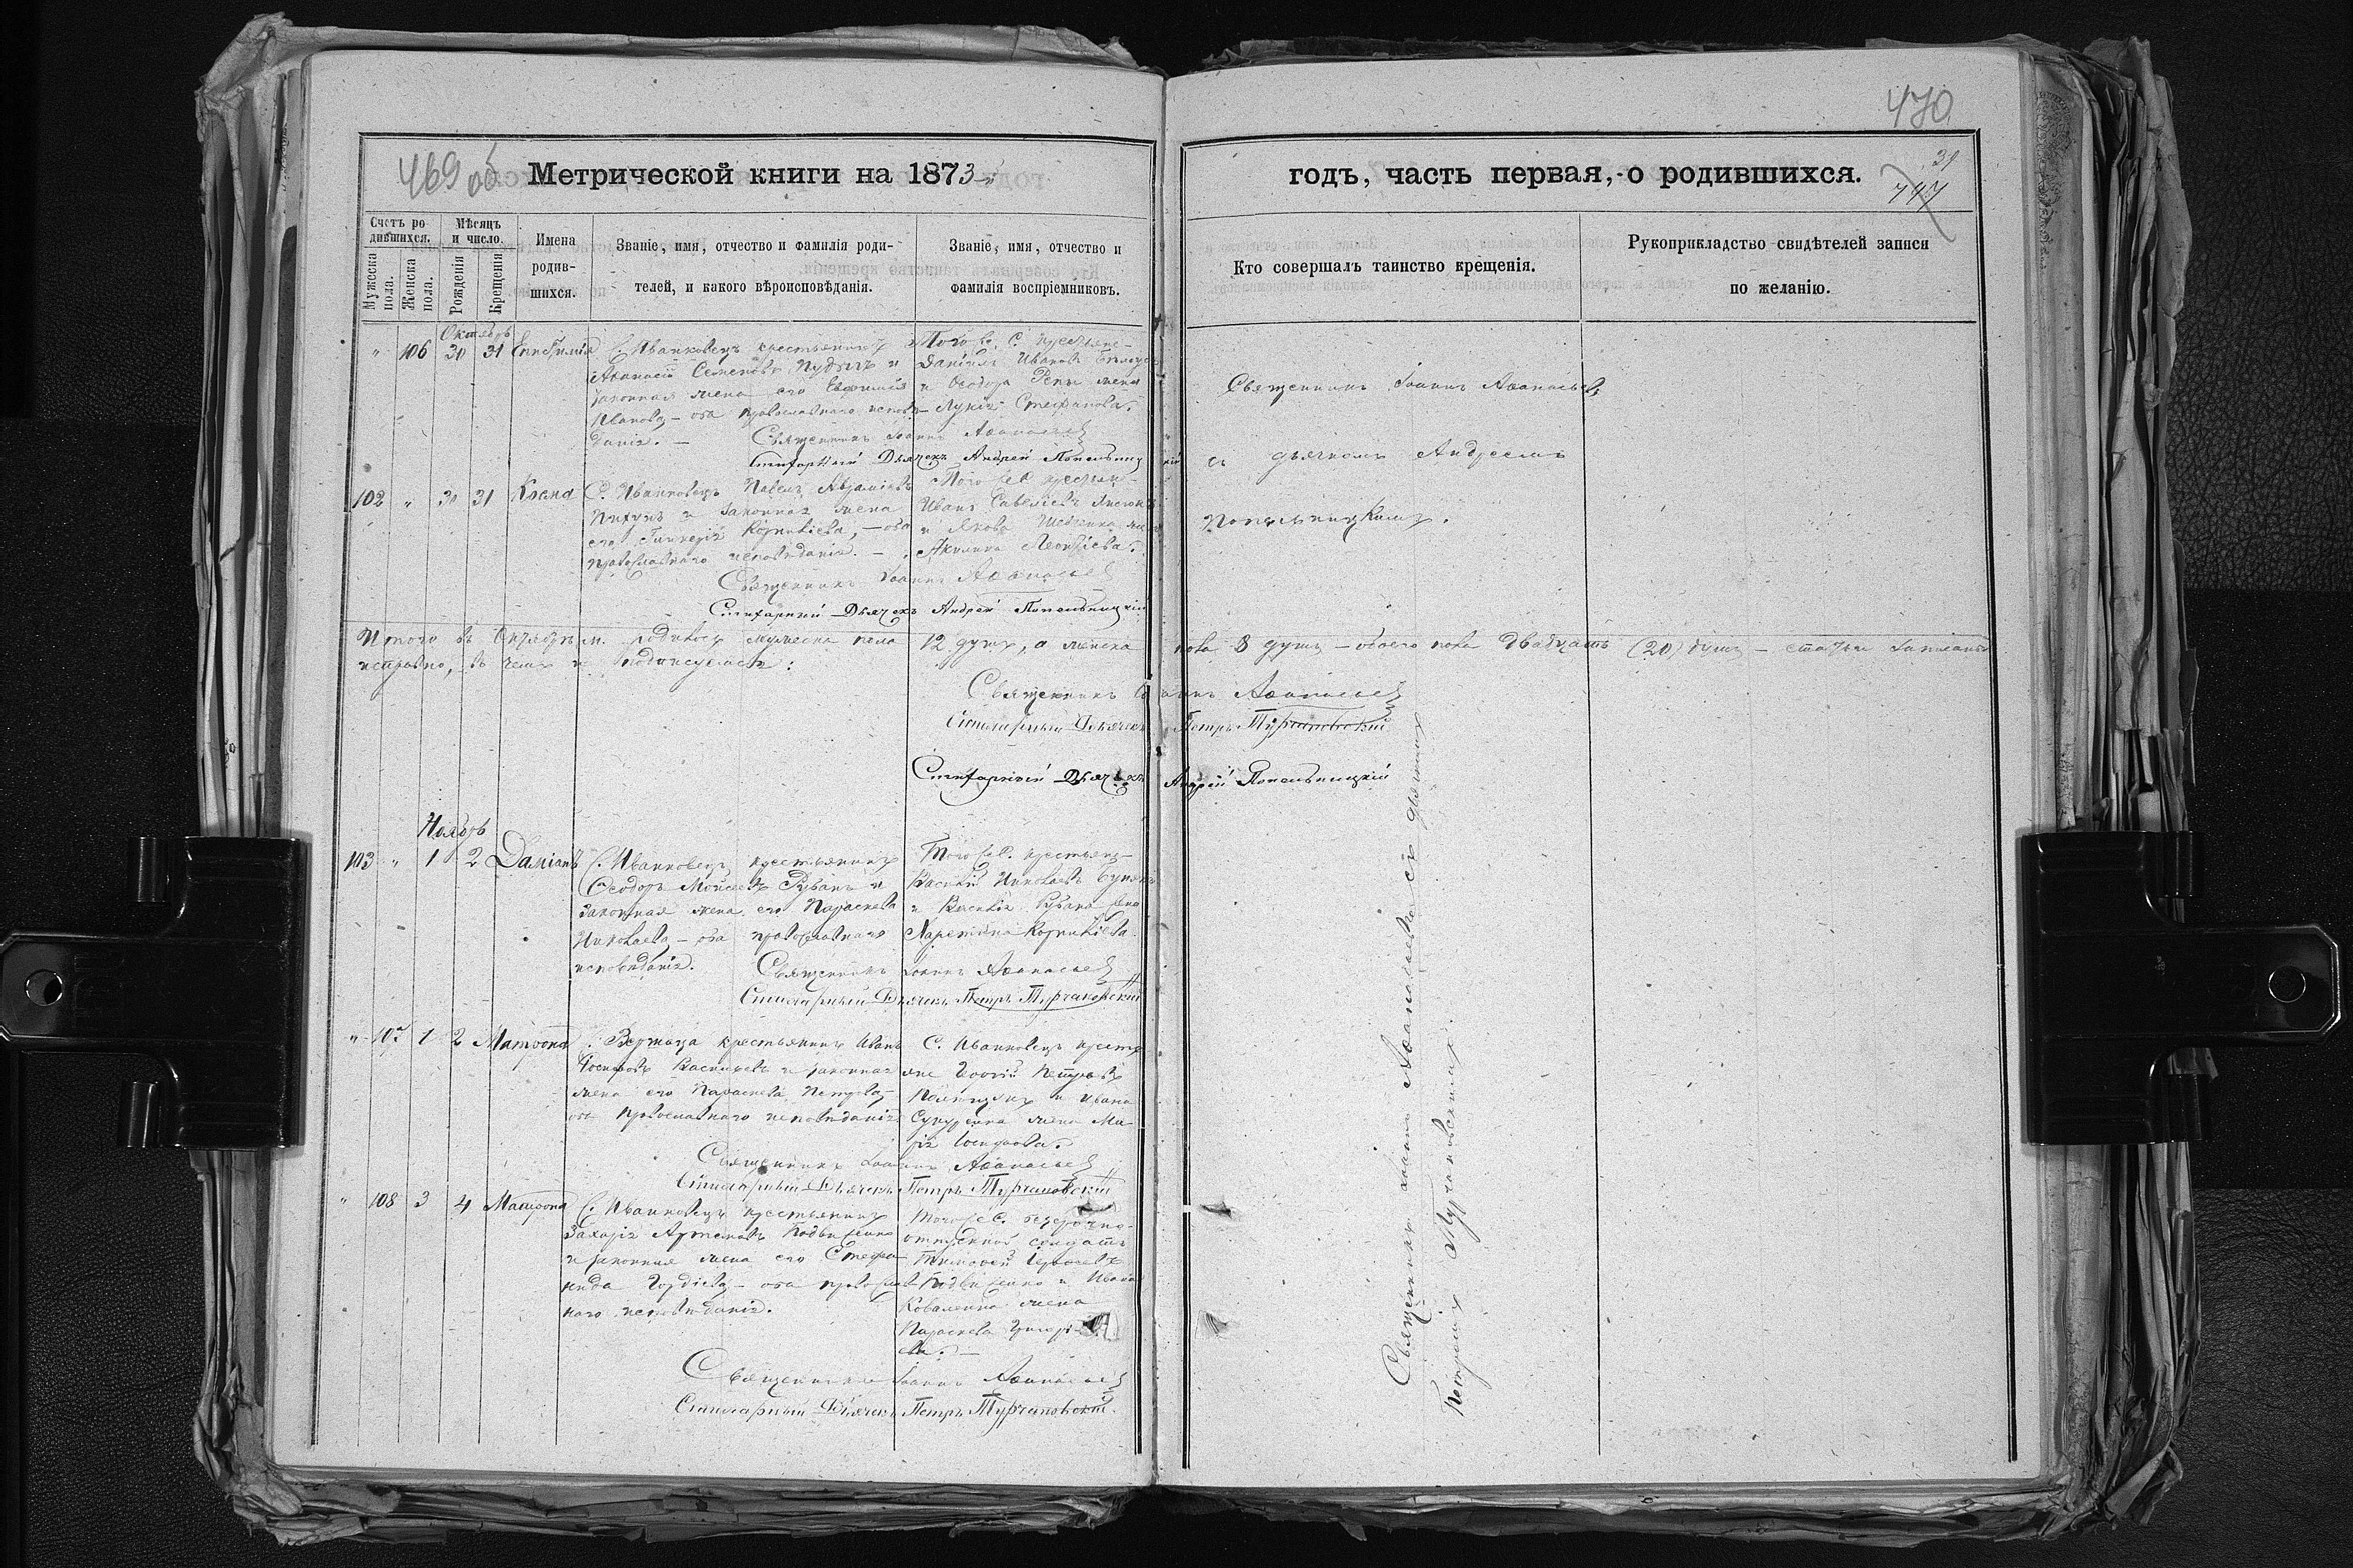 470
469 об
Метрической книги на 1873
годъ, часть первая, о родившихся.
31
747
Счетъ ро-
дившихся.
Мѣсяцъ
и число.
Мужеска
пола.
Женска
пола.
Рожденія
Крещенія
Имена
родив-
шихся.
Званіе, имя, отчество и фамилія роди-
телей, и какого вѣроисповѣданія.
Званіе, имя, отчество и
фамилія воспріемниковъ.
Кто совершалъ таинство крещенія.
Рукоприкладство свидѣтелей записи
по желанію.
Октябрь
" 106 30 31
С. Иванковецъ крестьянинъ
Аѳанасій Семеновъ и
законная жена его Евфимія
Иванова – оба православнаго исповѣ-
данія. –
Того же С. крестьяне
Даніилъ Ивановъ
и Ѳеодора Репы жена
Лукія Стефанова.
Священникъ Іоаннъ Аѳанасьевъ
Стихарный Дьячекъ Андрей Попельницкій
Священникъ Іоаннъ Аѳанасьевъ
съ дьячкомъ Андреемъ
Попельницкимъ.
102 " 31 31
С. Иванковецъ Павелъ Авраміевъ
и законная жена
его Гликерія Корниліева, – оба
православнаго исповѣданія. –
Того же С. крестьяне
Иванъ Савеліевъ
и Якова Шевченка жена
Акилина Леонтіева.
Священникъ Іоаннъ Аѳанасьевъ
Стихарный Дьячекъ Андрей Попельницкій
Итого въ Октябрѣ м. родилось мужеска пола 12 душъ, а женска пола 8 душъ – обоего пола двадцать (20) душъ – статьи записаны
исправно, въ чемъ и подписуемся:
Священникъ Іоаннъ Аѳанасьевъ
Стихарный Дьячекъ Петръ Турчановскій
Стихарный Дьячекъ Андрей Попельницкій
Ноябрь
103 " 1 2 Даміанъ
С. Иванковецъ крестьянинъ
Ѳеодоръ Моисеевъ Рубанъ и
законная жена его Параскева
Николаева – оба православнаго
исповѣданія.
Того же С. крестьяне
Василій Николаевъ
и Василія Рубана жена
Корниліева.
Священникъ Іоаннъ Аѳанасьевъ
Стихарный Дьячекъ Петръ Турчановскій
" 107 1 2 Матрона
крестьянинъ Иванъ
Іосифовъ Васильевъ и законная
жена его Параскева Петрова,
оба православнаго исповѣданія
С. Иванковецъ крестья-
не Петровъ
и Ивана
жена Ма-
рія Іосифова.
Священникъ Іоаннъ Аѳанасьевъ
Стихарный Дьячекъ Петръ Турчановскій
" 108 3 4 Матрона
С. Иванковецъ крестьянинъ
Захарія Артемовъ
и законная жена его Стефа-
нида Гордіева – оба православ-
наго исповѣданія.
Того же С. безсрочно-
отпускной солдатъ
Тимофей
и Ивана
Коваленка жена
Параскева Григорі-
ева. –
Священникъ Іоаннъ Аѳанасьевъ
Стихарный Дьячекъ Петръ Турчановскій
Священникъ Іоаннъ Аѳанасьевъ съ дьячкомъ
Петромъ Турчановскимъ.